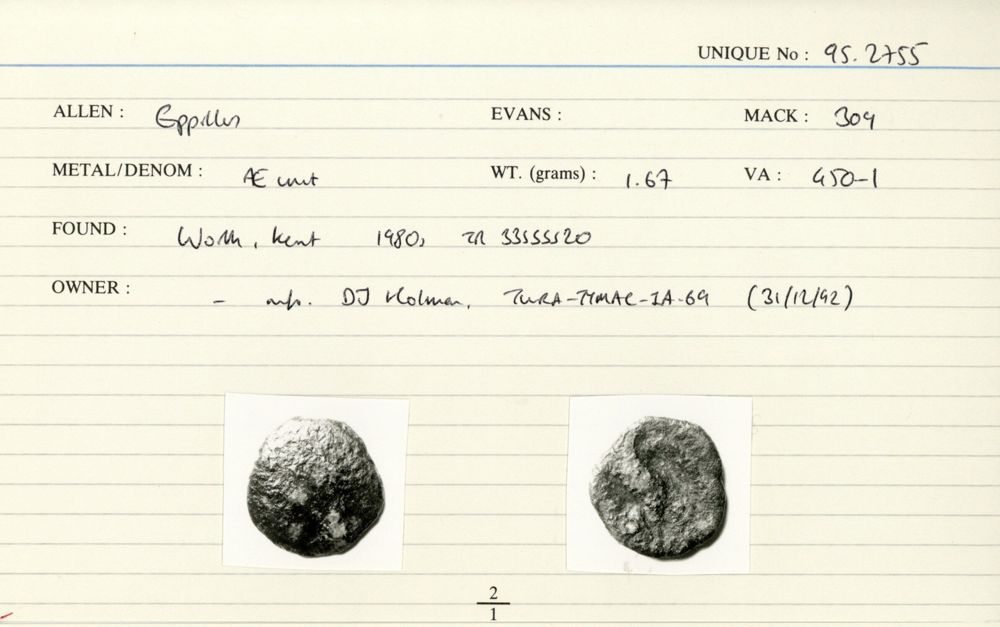 UNIQUE No : 95.2755
ALLEN : Eppillus EVANS : MACK : 309
METAL/DENOM : Æ unit WT. (grams) : 1.67 VA : 450-1
FOUND : Worth, Kent 1980s TR 33555520
OWNER : - info. DJ Holman, (31/12/92)
2
1